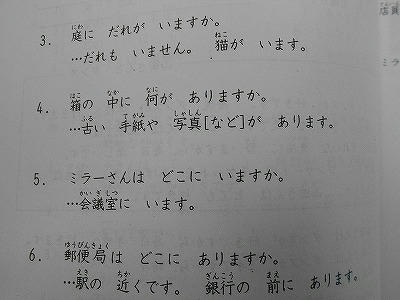 3. 庭に だれが いますか。
…だれも いません。 猫が います。
4. 箱の 中に 何が ありますか。
…古い 手紙や 写真[など]が あります。
5. ミラーさんは どこに いますか。
…会議室に います。
6. 郵便局は どこに ありますか。
…駅の 近くです。 銀行の 前に あります。
店員
ミラ